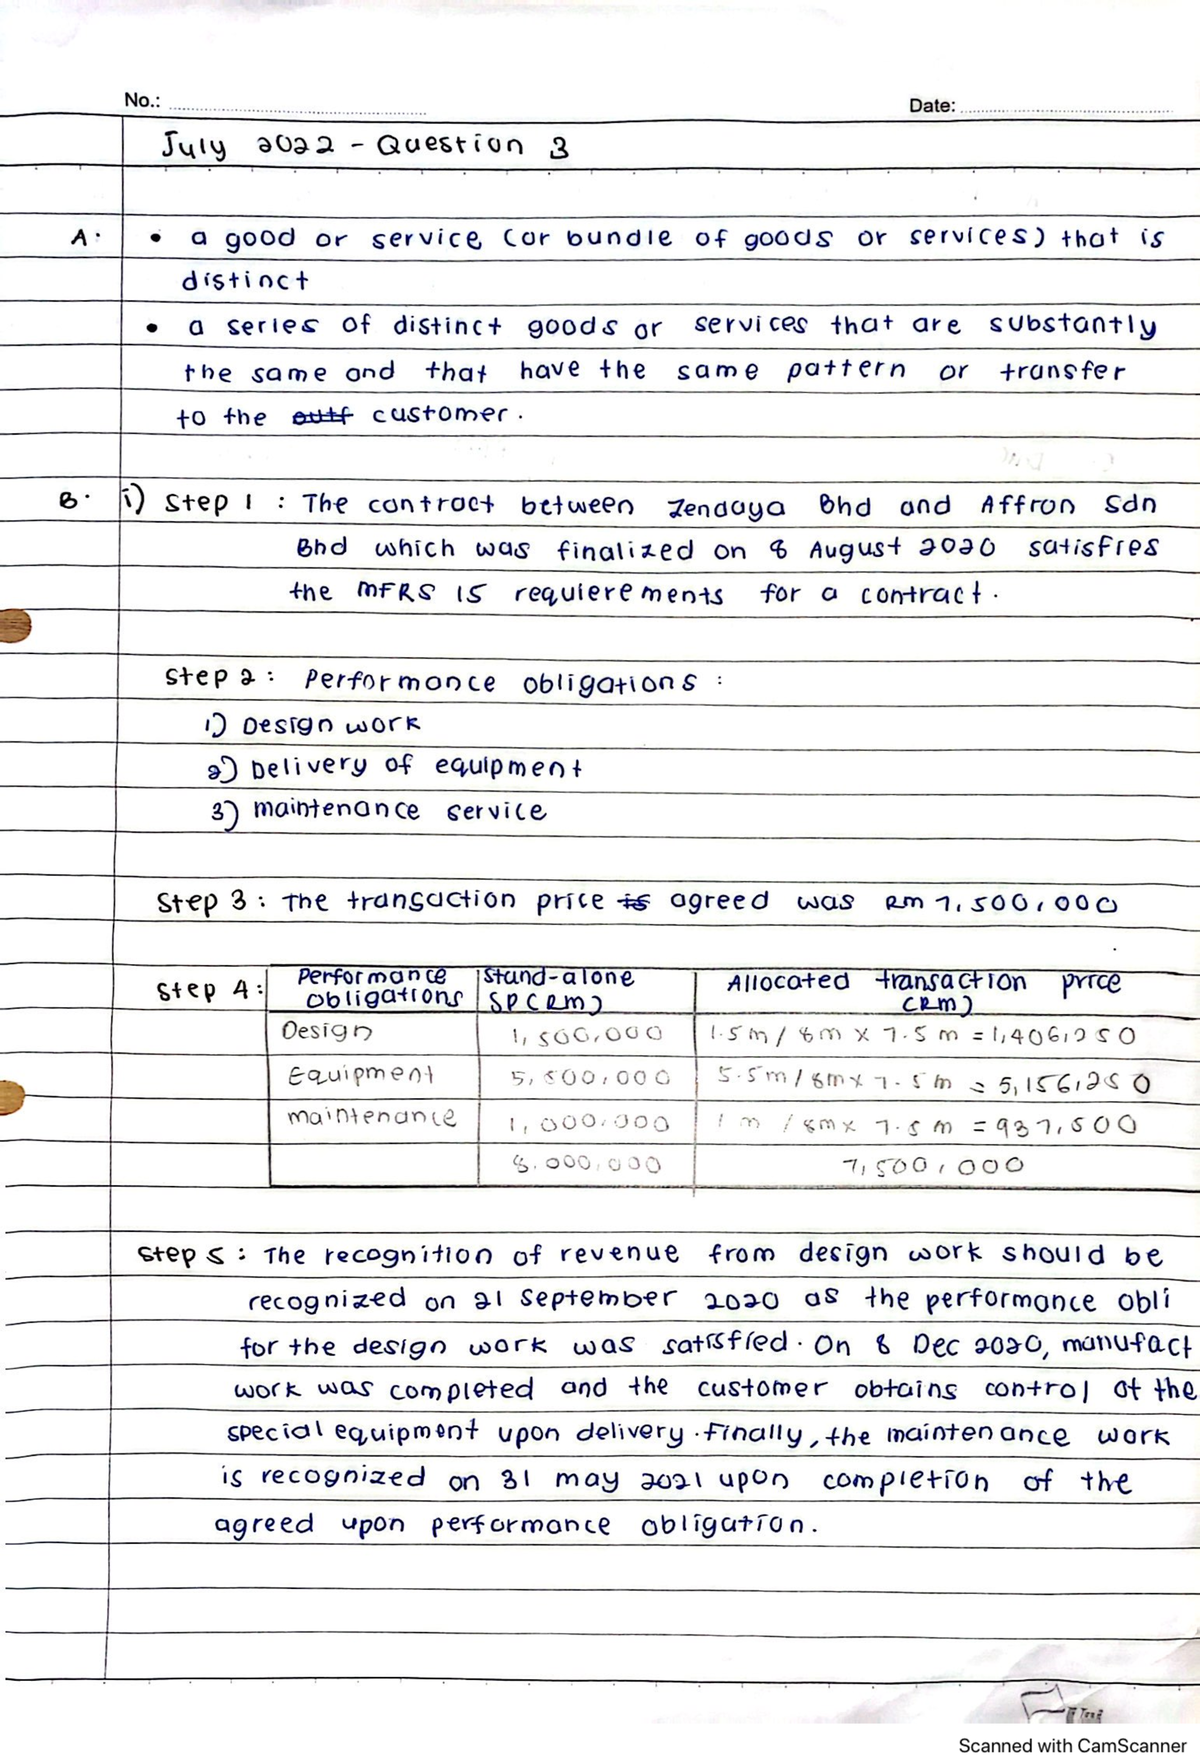 No.: Date:
July 2022 - Question 3
A. • a good or service (or bundle of goods or services) that is
distinct
• a series of distinct goods or services that are substantly
the same and that have the same pattern or transfer
to the customer.
B. i) Step 1 : The contract between Zendaya Bhd and Affron Sdn
Bhd which was finalized on 8 August 2020 satisfies
the MFRS 15 requierements for a contract.
Step 2 : Performance obligations :
1) Design work
2) Delivery of equipment
3) maintenance service
Step 3 : The transaction price is agreed was RM 7,500,000
Step 4 : Performance Obligations Stand-alone SP (RM) Allocated transaction price (RM)
Design 1,500,000 1.5m / 8m x 7.5 m = 1,406,250
Equipment 5,500,000 5.5m / 8m x 7.5m = 5,156,250
maintenance 1,000,000 1 m / 8m x 7.5 m = 937,500
8,000,000 7,500,000
Step 5 : The recognition of revenue from design work should be
recognized on 21 September 2020 as the performance obli
for the design work was satisfied. On 8 Dec 2020, manufact
work was completed and the customer obtains control of the
special equipment upon delivery. Finally, the maintenance work
is recognized on 31 may 2021 upon completion of the
agreed upon performance obligation.
Scanned with CamScanner